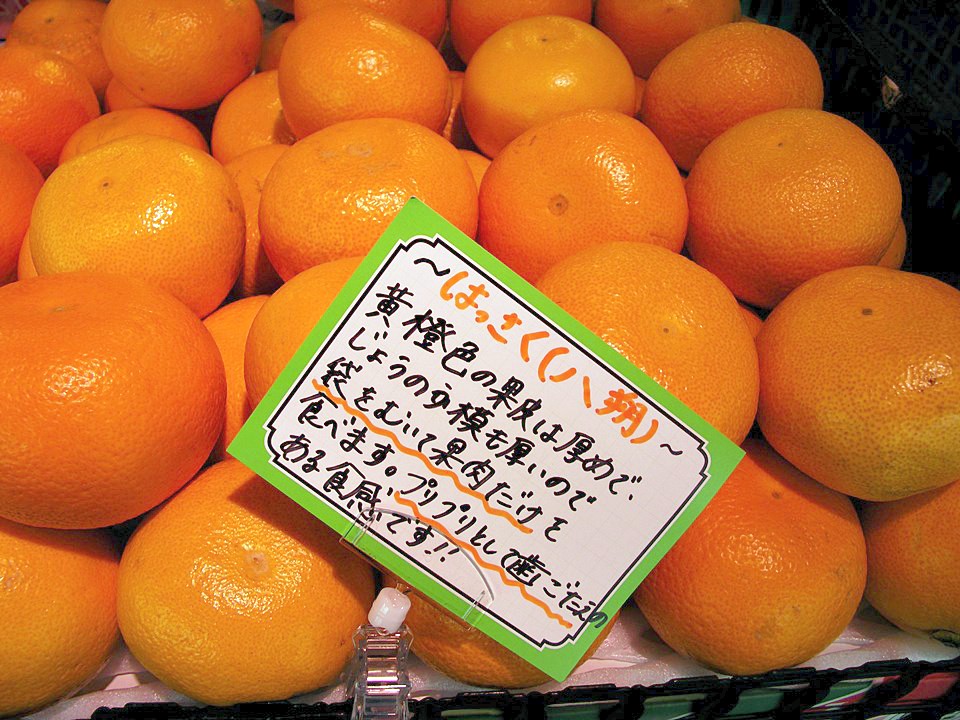 ～はっさく(八朔)～
黄橙色の果皮は厚めで、
じょうのう模も厚いので
袋をむいて果肉だけを
食べます。プリプリとして歯ごたえの
ある食感です!!